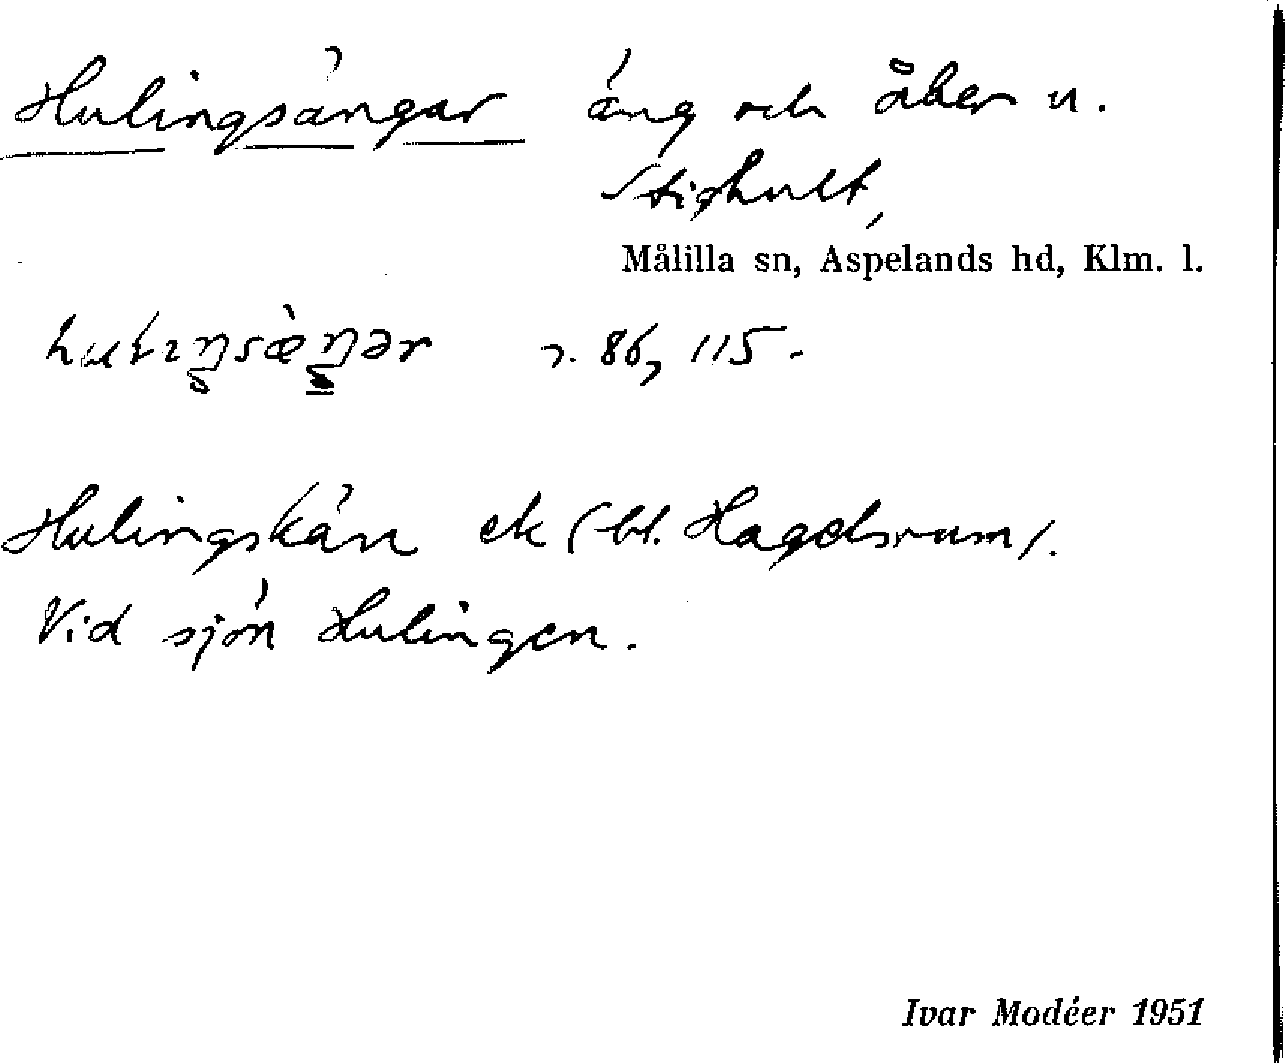 Hulingsängar äng och åker u.
Stighult,
Målilla sn, Aspelands hd, Klm. l.
r. 86, 115.
Hulingskärr ek (bl. Hagelsrum).
Vid sjön Hulingen.
Ivar Modéer 1951